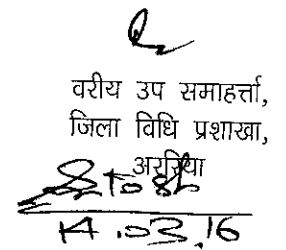 वरीय उप समाहर्त्ता,
जिला विधि प्रशाखा,
अररिया
14.03.16